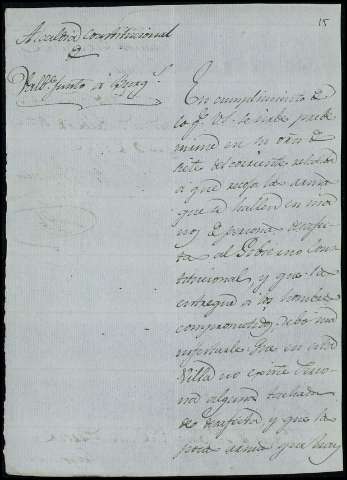 15
Alcaldia Constitucional
de
Vald.^s Junto á Burg.^s
En cumplimiento de
lo q.^e VS. se sirbe preb
nirme en su orn de
siete del corriente relatiba
a que recoja las armas
que se hallen en ma
nos de personas desafec
tas al Gobierno Cons
titucional y que las
entregue a los hombres
comprometidos; debo ma
nifestarle que en esta
Villa no existe Perso
na alguna tachada
de desafecta y que las
pocas armas que hay